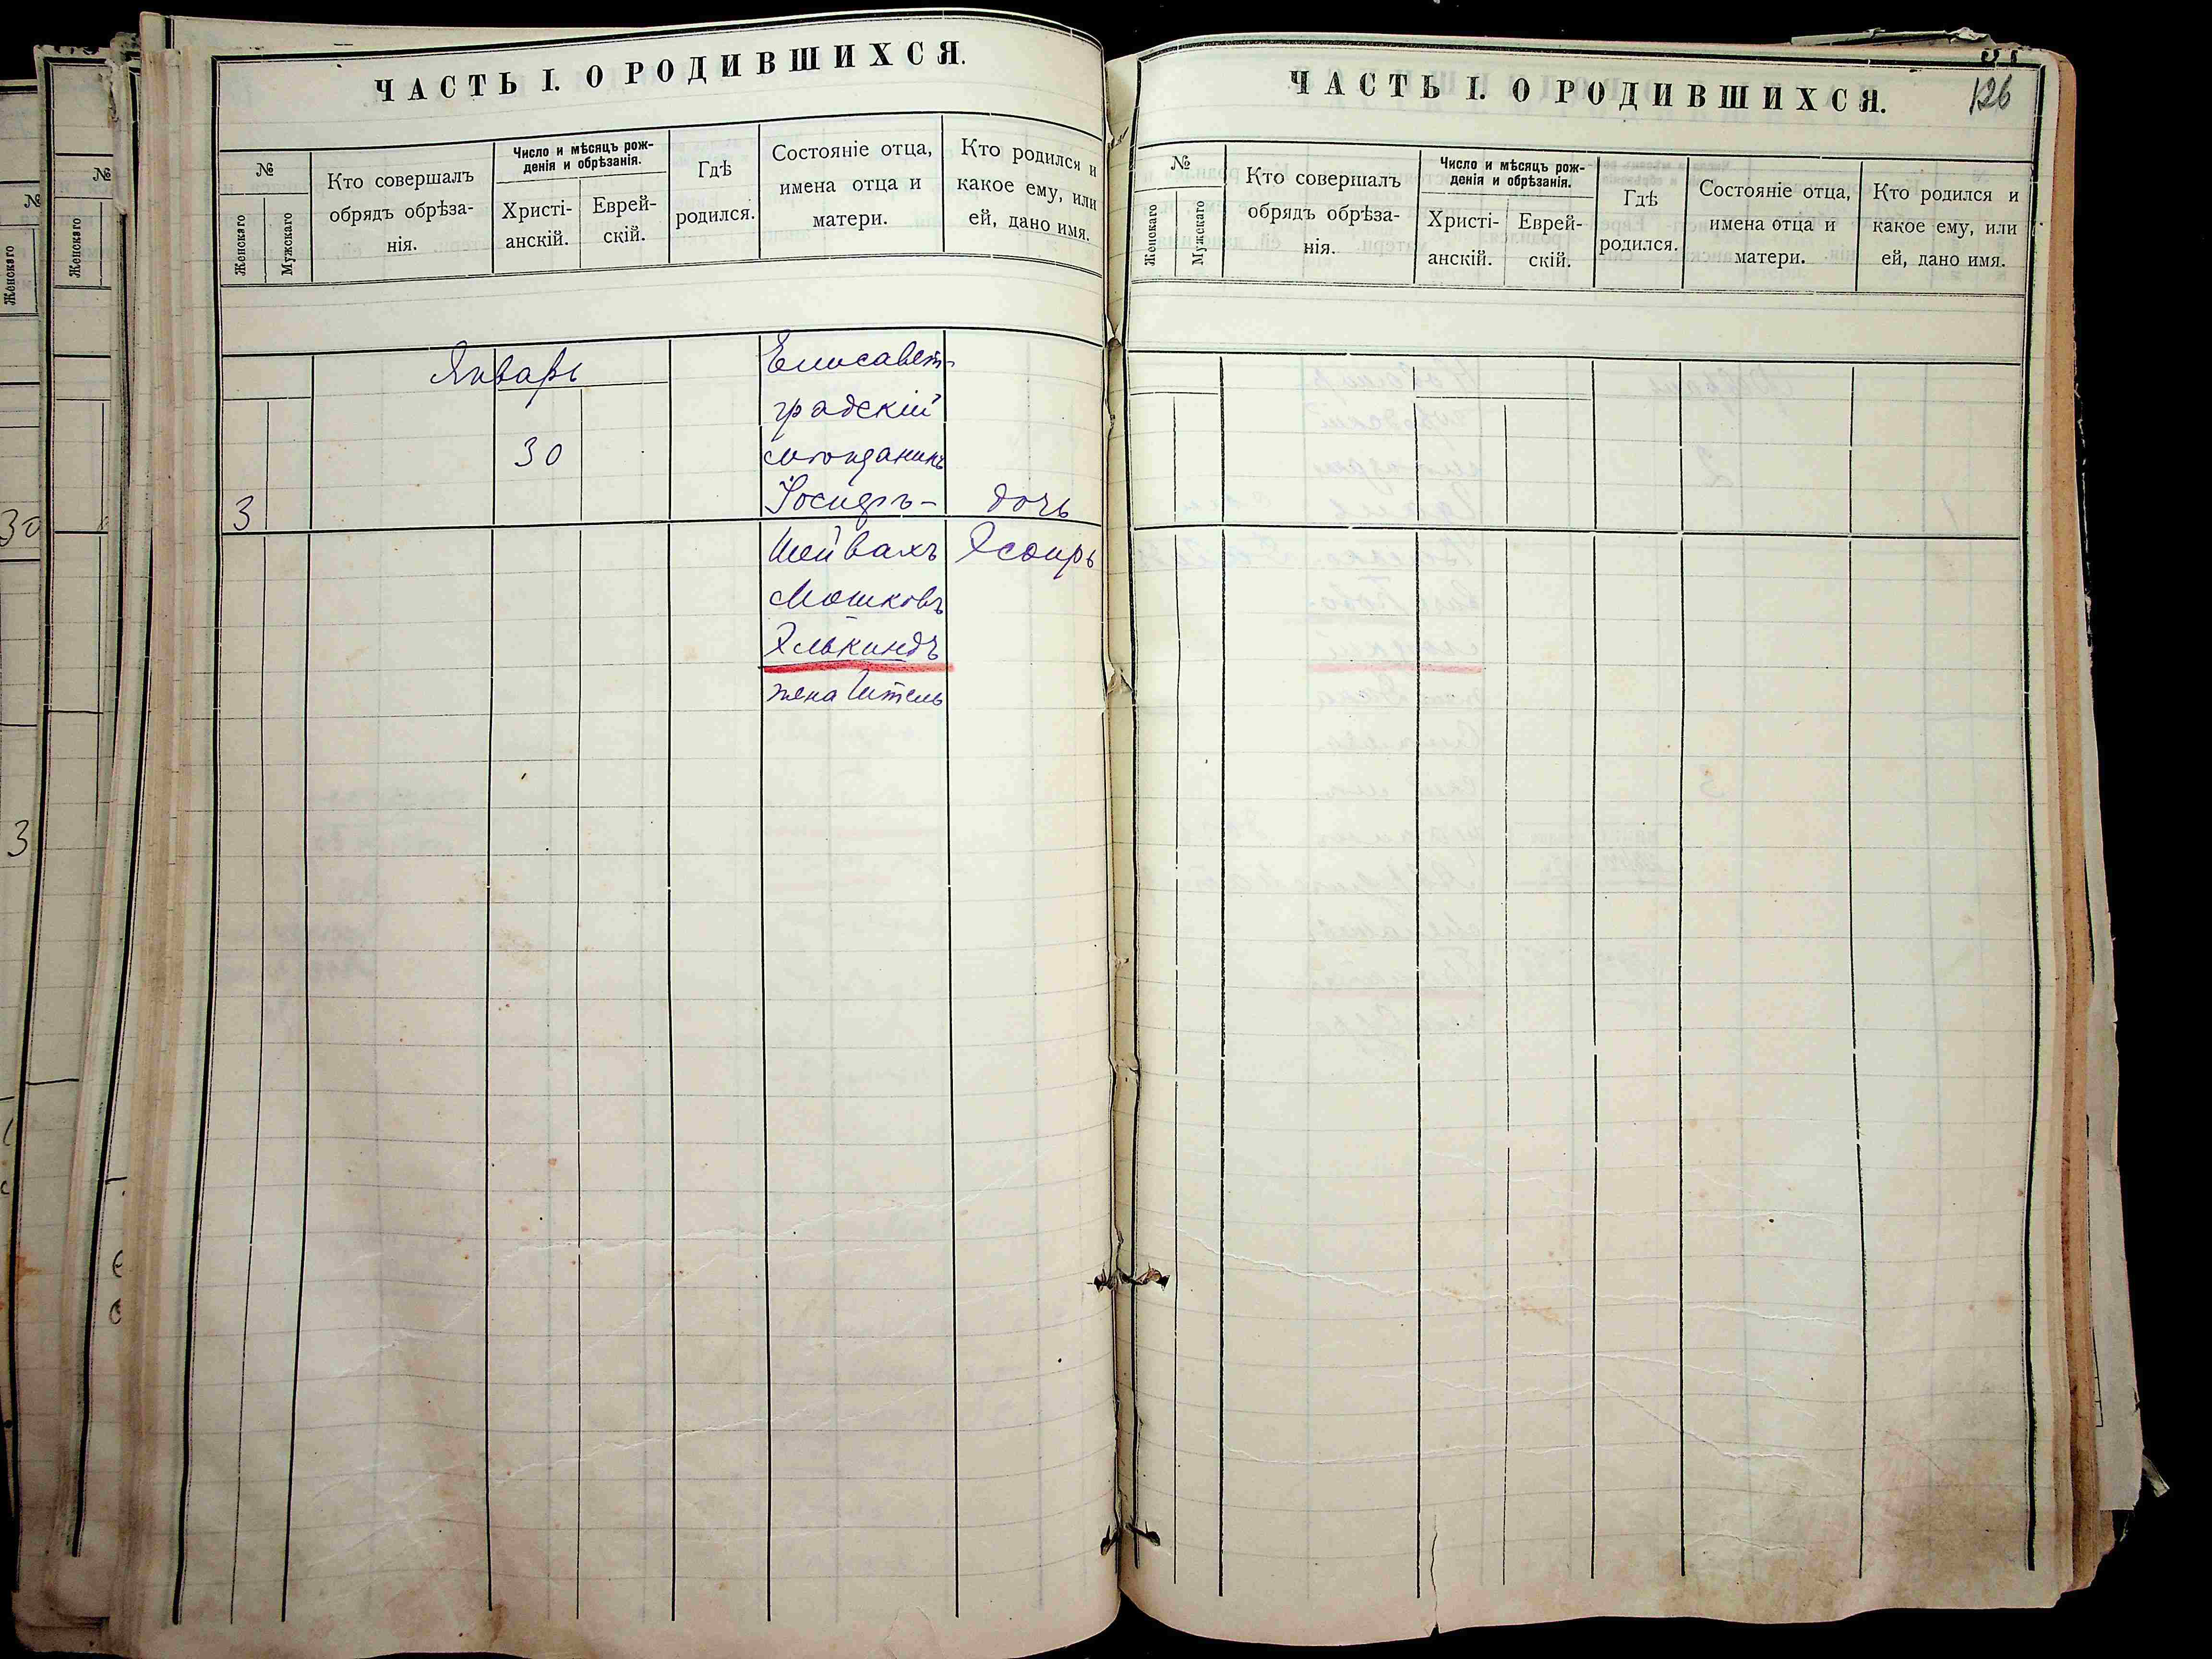 ЧАСТЬ I. О РОДИВШИХСЯ.
№
Женскаго
Мужскаго
Кто совершалъ
обрядъ обрѣза-
нія.
Число и мѣсяцъ рож-
денія и обрѣзанія.
Христі-
анскій.
Еврей-
скій.
Гдѣ
родился.
Состояніе отца,
имена отца и
матери.
Кто родился и
какое ему, или
ей, дано имя.
Январь
30
3
Елисавет-
градскій
мѣщанинъ
Іосифъ-
Шейвахъ
Мошковъ
Элькиндъ
жена Итель
дочь
Эсѳирь
ЧАСТЬ I. О РОДИВШИХСЯ.
126
№
Женскаго
Мужскаго
Кто совершалъ
обрядъ обрѣза-
нія.
Число и мѣсяцъ рож-
денія и обрѣзанія.
Христі-
анскій.
Еврей-
скій.
Гдѣ
родился.
Состояніе отца,
имена отца и
матери.
Кто родился и
какое ему, или
ей, дано имя.
№
Женскаго
№
Женскаго
30
3